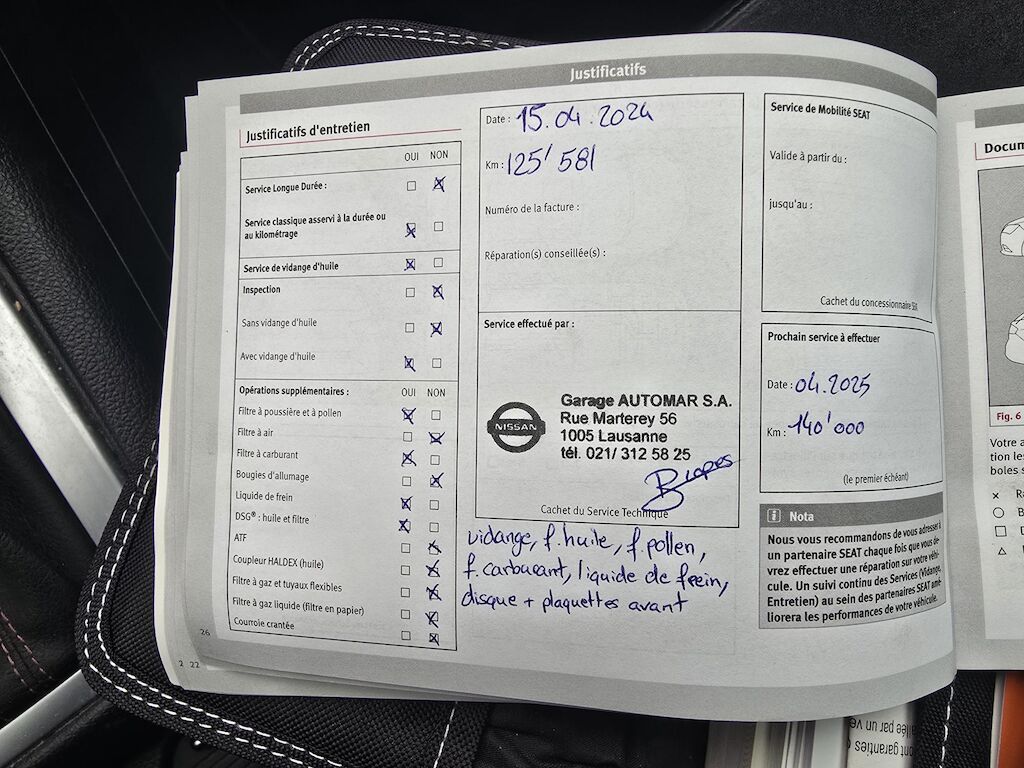 Justificatifs
Justificatifs d'entretien
OUI NON
Service Longue Durée :
Service classique asservi à la durée ou
au kilométrage
Service de vidange d'huile
Inspection
Sans vidange d'huile
Avec vidange d'huile
Opérations supplémentaires : OUI NON
Filtre à poussière et à pollen
Filtre à air
Filtre à carburant
Bougies d'allumage
Liquide de frein
DSG® : huile et filtre
ATF
Coupleur HALDEX (huile)
Filtre à gaz et tuyaux flexibles
Filtre à gaz liquide (filtre en papier)
Courroie crantée
26
2 22
Date : 15.04.2024
Km : 125'581
Numéro de la facture :
Réparation(s) conseillée(s) :
Service effectué par :
NISSAN
Garage AUTOMAR S.A.
Rue Marterey 56
1005 Lausanne
tél. 021/ 312 58 25
Cachet du Service Technique
vidange, f.huile, f.pollen,
f.carburant, liquide de frein,
disque + plaquettes avant
Service de Mobilité SEAT
Valide à partir du :
jusqu'au :
Cachet du concessionnaire SEAT
Prochain service à effectuer
Date : 04.2025
Km : 140'000
(le premier échéant)
i Nota
Nous vous recommandons de vous adresser à
un partenaire SEAT chaque fois que vous de-
vrez effectuer une réparation sur votre véhi-
cule. Un suivi continu des Services (Vidange,
Entretien) au sein des partenaires SEAT amé-
liorera les performances de votre véhicule.
Docum
Fig. 6
Votre a
tion les
boles s